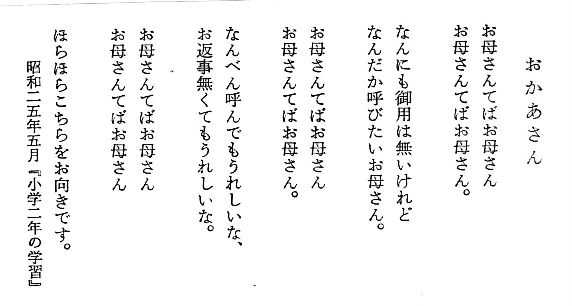 おかあさん
お母さんてばお母さん
お母さんてばお母さん。
なんにも御用は無いけれど
なんだか呼びたいお母さん。
お母さんてばお母さん
お母さんてばお母さん。
なんべん呼んでもうれしいな、
お返事無くてもうれしいな。
お母さんてばお母さん
お母さんてばお母さん
ほらほらこちらをお向きです。
昭和二五年五月『小学二年の学習』